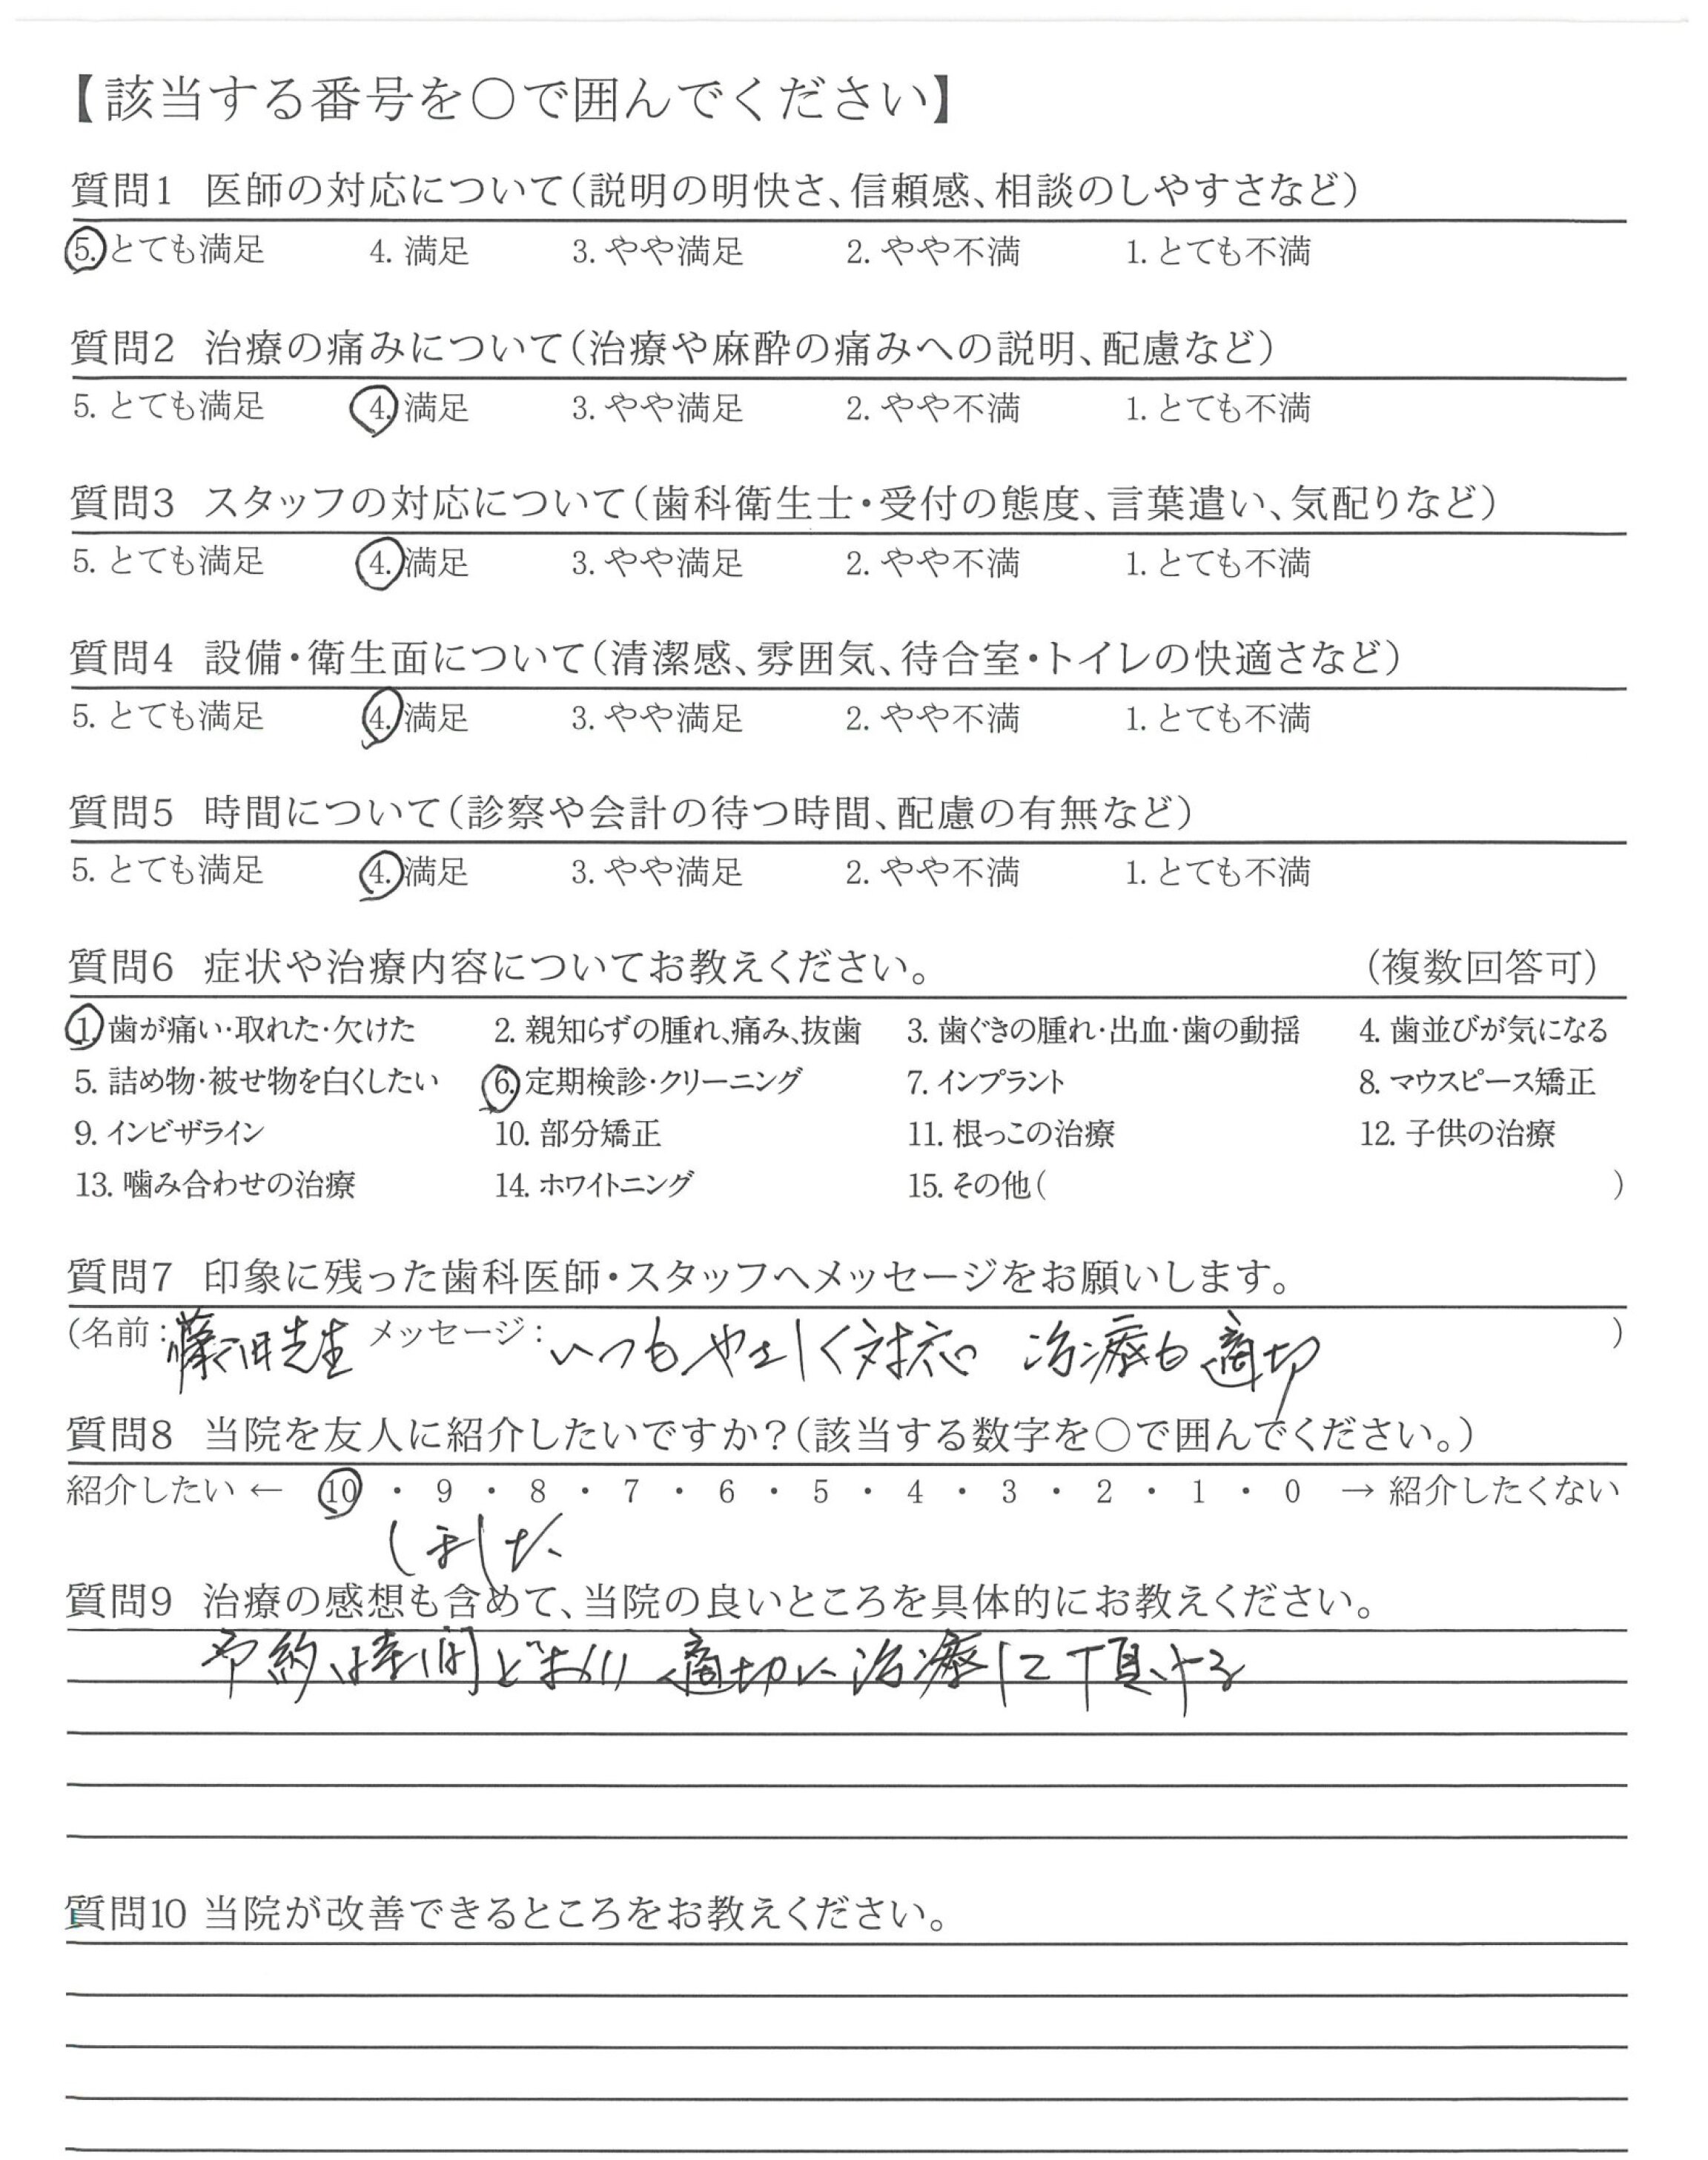 【該当する番号を○で囲んでください】
質問1 医師の対応について(説明の明快さ、信頼感、相談のしやすさなど)
5. とても満足 4. 満足 3. やや満足 2. やや不満 1. とても不満
質問2 治療の痛みについて(治療や麻酔の痛みへの説明、配慮など)
5. とても満足 4. 満足 3. やや満足 2. やや不満 1. とても不満
質問3 スタッフの対応について(歯科衛生士・受付の態度、言葉遣い、気配りなど)
5. とても満足 4. 満足 3. やや満足 2. やや不満 1. とても不満
質問4 設備・衛生面について(清潔感、雰囲気、待合室・トイレの快適さなど)
5. とても満足 4. 満足 3. やや満足 2. やや不満 1. とても不満
質問5 時間について(診察や会計の待つ時間、配慮の有無など)
5. とても満足 4. 満足 3. やや満足 2. やや不満 1. とても不満
質問6 症状や治療内容についてお教えください。 (複数回答可)
1. 歯が痛い・取れた・欠けた 2. 親知らずの腫れ、痛み、抜歯 3. 歯ぐきの腫れ・出血・歯の動揺 4. 歯並びが気になる
5. 詰め物・被せ物を白くしたい 6. 定期検診・クリーニング 7. インプラント 8. マウスピース矯正
9. インビザライン 10. 部分矯正 11. 根っこの治療 12. 子供の治療
13. 噛み合わせの治療 14. ホワイトニング 15. その他( )
質問7 印象に残った歯科医師・スタッフへメッセージをお願いします。
(名前: 先生 メッセージ: いつもやさしく対応 治療も適切 )
質問8 当院を友人に紹介したいですか?(該当する数字を○で囲んでください。)
紹介したい ← 10 ・ 9 ・ 8 ・ 7 ・ 6 ・ 5 ・ 4 ・ 3 ・ 2 ・ 1 ・ 0 → 紹介したくない
しました
質問9 治療の感想も含めて、当院の良いところを具体的にお教えください。
予約時間どおり 適切に治療して頂ける
質問10 当院が改善できるところをお教えください。